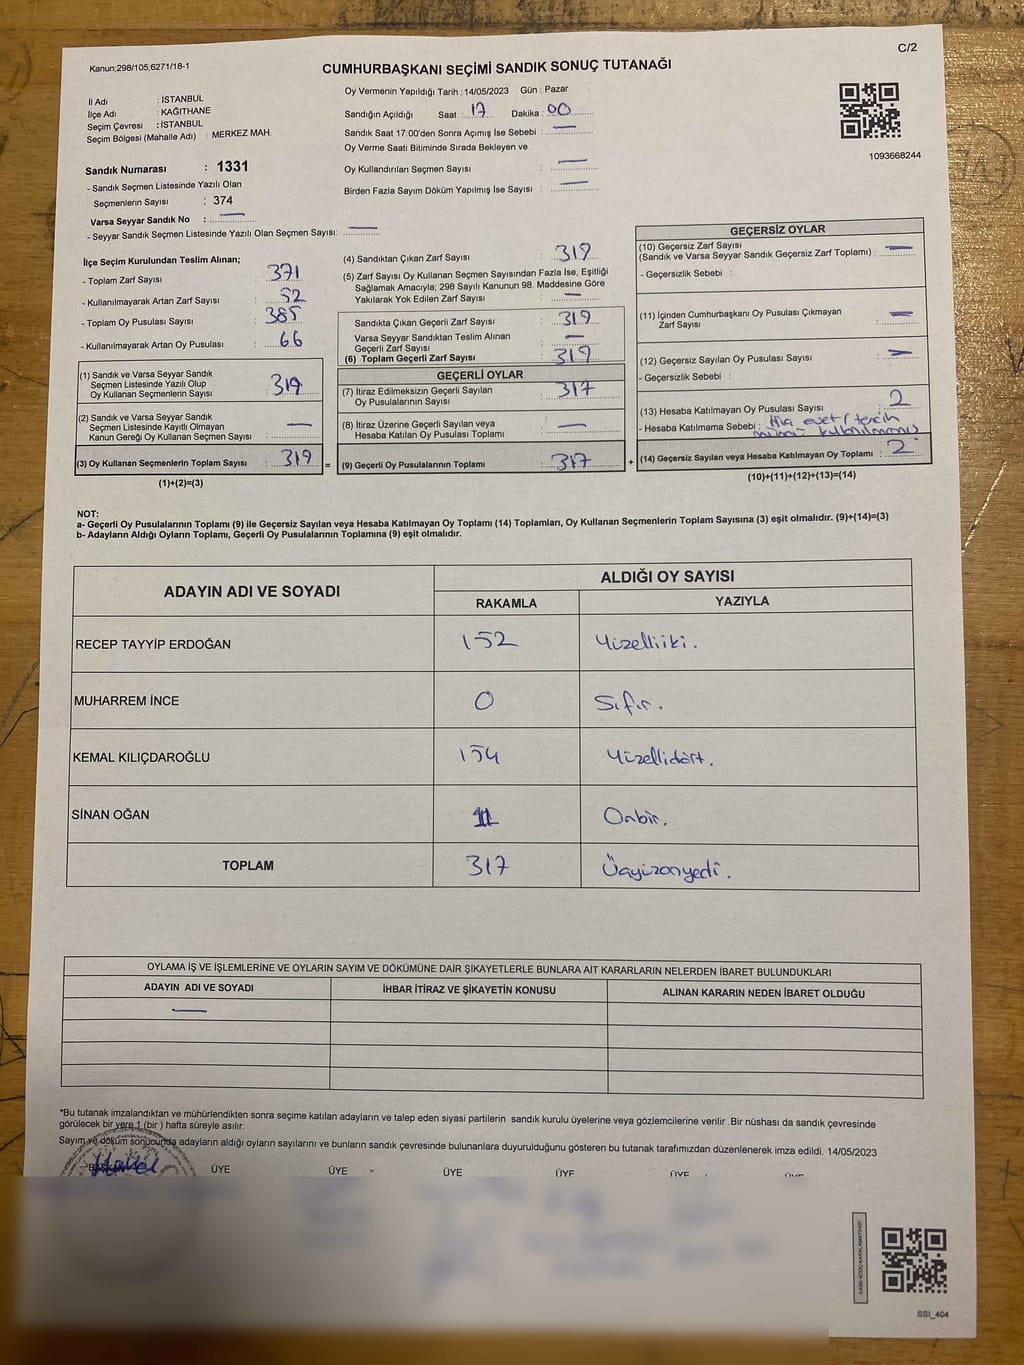 C/2
Kanun;298/105,6271/18-1
CUMHURBAŞKANI SEÇİMİ SANDIK SONUÇ TUTANAĞI
İl Adı : İSTANBUL
İlçe Adı : KAĞITHANE
Seçim Çevresi : İSTANBUL
Seçim Bölgesi (Mahalle Adı) : MERKEZ MAH.
Sandık Numarası : 1331
- Sandık Seçmen Listesinde Yazılı Olan
Seçmenlerin Sayısı : 374
Varsa Seyyar Sandık No : —
- Seyyar Sandık Seçmen Listesinde Yazılı Olan Seçmen Sayısı: —
Oy Vermenin Yapıldığı Tarih : 14/05/2023 Gün : Pazar
Sandığın Açıldığı Saat : 17 Dakika : 00
Sandık Saat 17:00'den Sonra Açımış İse Sebebi : —
Oy Verme Saati Bitiminde Sırada Bekleyen ve
Oy Kullandırılan Seçmen Sayısı : —
Birden Fazla Sayım Döküm Yapılmış İse Sayısı : —
1093668244
İlçe Seçim Kurulundan Teslim Alınan;
- Toplam Zarf Sayısı : 371
- Kullanılmayarak Artan Zarf Sayısı : 52
- Toplam Oy Pusulası Sayısı : 385
- Kullanılmayarak Artan Oy Pusulası : 66
(1) Sandık ve Varsa Seyyar Sandık
Seçmen Listesinde Yazılı Olup
Oy Kullanan Seçmenlerin Sayısı : 319
(2) Sandık ve Varsa Seyyar Sandık
Seçmen Listesinde Kayıtlı Olmayan
Kanun Gereği Oy Kullanan Seçmen Sayısı : —
(3) Oy Kullanan Seçmenlerin Toplam Sayısı : 319 =
(1)+(2)=(3)
(4) Sandıktan Çıkan Zarf Sayısı : 319
(5) Zarf Sayısı Oy Kullanan Seçmen Sayısından Fazla İse, Eşitliği
Sağlamak Amacıyla; 298 Sayılı Kanunun 98. Maddesine Göre
Yakılarak Yok Edilen Zarf Sayısı : —
Sandıkta Çıkan Geçerli Zarf Sayısı : 319
Varsa Seyyar Sandıktan Teslim Alınan
Geçerli Zarf Sayısı : —
(6) Toplam Geçerli Zarf Sayısı : 319
GEÇERLİ OYLAR
(7) İtiraz Edilmeksizin Geçerli Sayılan
Oy Pusulalarının Sayısı : 317
(8) İtiraz Üzerine Geçerli Sayılan veya
Hesaba Katılan Oy Pusulası Toplamı : —
(9) Geçerli Oy Pusulalarının Toplamı : 317 +
GEÇERSİZ OYLAR
(10) Geçersiz Zarf Sayısı
(Sandık ve Varsa Seyyar Sandık Geçersiz Zarf Toplamı) : —
- Geçersizlik Sebebi :
(11) İçinden Cumhurbaşkanı Oy Pusulası Çıkmayan
Zarf Sayısı : —
(12) Geçersiz Sayılan Oy Pusulası Sayısı : —
- Geçersizlik Sebebi :
(13) Hesaba Katılmayan Oy Pusulası Sayısı : 2
- Hesaba Katılmama Sebebi : Hiç evet / tercih
mührü kullanılmamış
(14) Geçersiz Sayılan veya Hesaba Katılmayan Oy Toplamı : 2
(10)+(11)+(12)+(13)=(14)
NOT:
a- Geçerli Oy Pusulalarının Toplamı (9) ile Geçersiz Sayılan veya Hesaba Katılmayan Oy Toplamı (14) Toplamları, Oy Kullanan Seçmenlerin Toplam Sayısına (3) eşit olmalıdır. (9)+(14)=(3)
b- Adayların Aldığı Oyların Toplamı, Geçerli Oy Pusulalarının Toplamına (9) eşit olmalıdır.
ADAYIN ADI VE SOYADI
ALDIĞI OY SAYISI
RAKAMLA YAZIYLA
RECEP TAYYİP ERDOĞAN 152 Yüzelliiki.
MUHARREM İNCE 0 Sıfır.
KEMAL KILIÇDAROĞLU 154 Yüzellidört.
SİNAN OĞAN 11 Onbir.
TOPLAM 317 Üçyüzonyedi.
OYLAMA İŞ VE İŞLEMLERİNE VE OYLARIN SAYIM VE DÖKÜMÜNE DAİR ŞİKAYETLERLE BUNLARA AİT KARARLARIN NELERDEN İBARET BULUNDUKLARI
ADAYIN ADI VE SOYADI İHBAR İTİRAZ VE ŞİKAYETİN KONUSU ALINAN KARARIN NEDEN İBARET OLDUĞU
—
*Bu tutanak imzalandıktan ve mühürlendikten sonra seçime katılan adayların ve talep eden siyasi partilerin sandık kurulu üyelerine veya gözlemcilerine verilir. Bir nüshası da sandık çevresinde
görülecek bir yere 1 (bir ) hafta süreyle asılır.
Sayım ve döküm sonucunda adayların aldığı oyların sayılarını ve bunların sandık çevresinde bulunanlara duyurulduğunu gösteren bu tutanak tarafımızdan düzenlenerek imza edildi. 14/05/2023
BAŞKAN ÜYE ÜYE ÜYE ÜYE ÜYE ÜYE
SSI_404